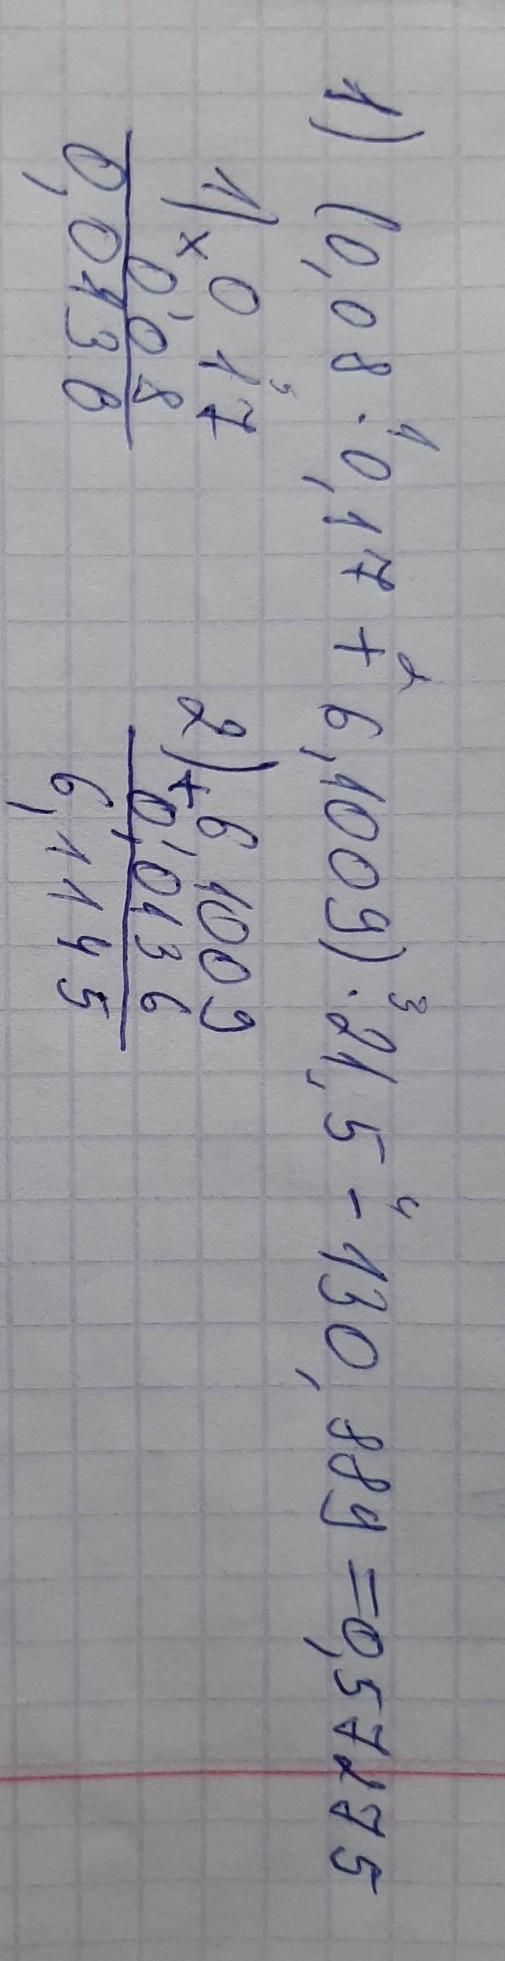 1) (0,08 ·¹ 0,17 +² 6,1009) ·³ 21,5 -⁴ 130,889 = 0,57275
1) × 0,1⁵7
0,08
0,0136
2) + 6,1009
0,0136
6,1145